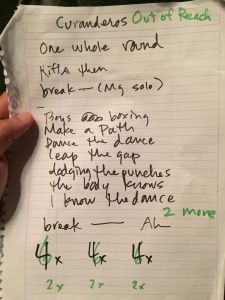 Curanderos Out of Reach
One whole round
Riffs then
break — (Mg solo)
Boys boxing
Make a Path
Dance the dance
Leap the gap
dodging the punches
the body knows
I know the dance
2 more
break — Ah
4x 4x 4x
2x 2x 2x